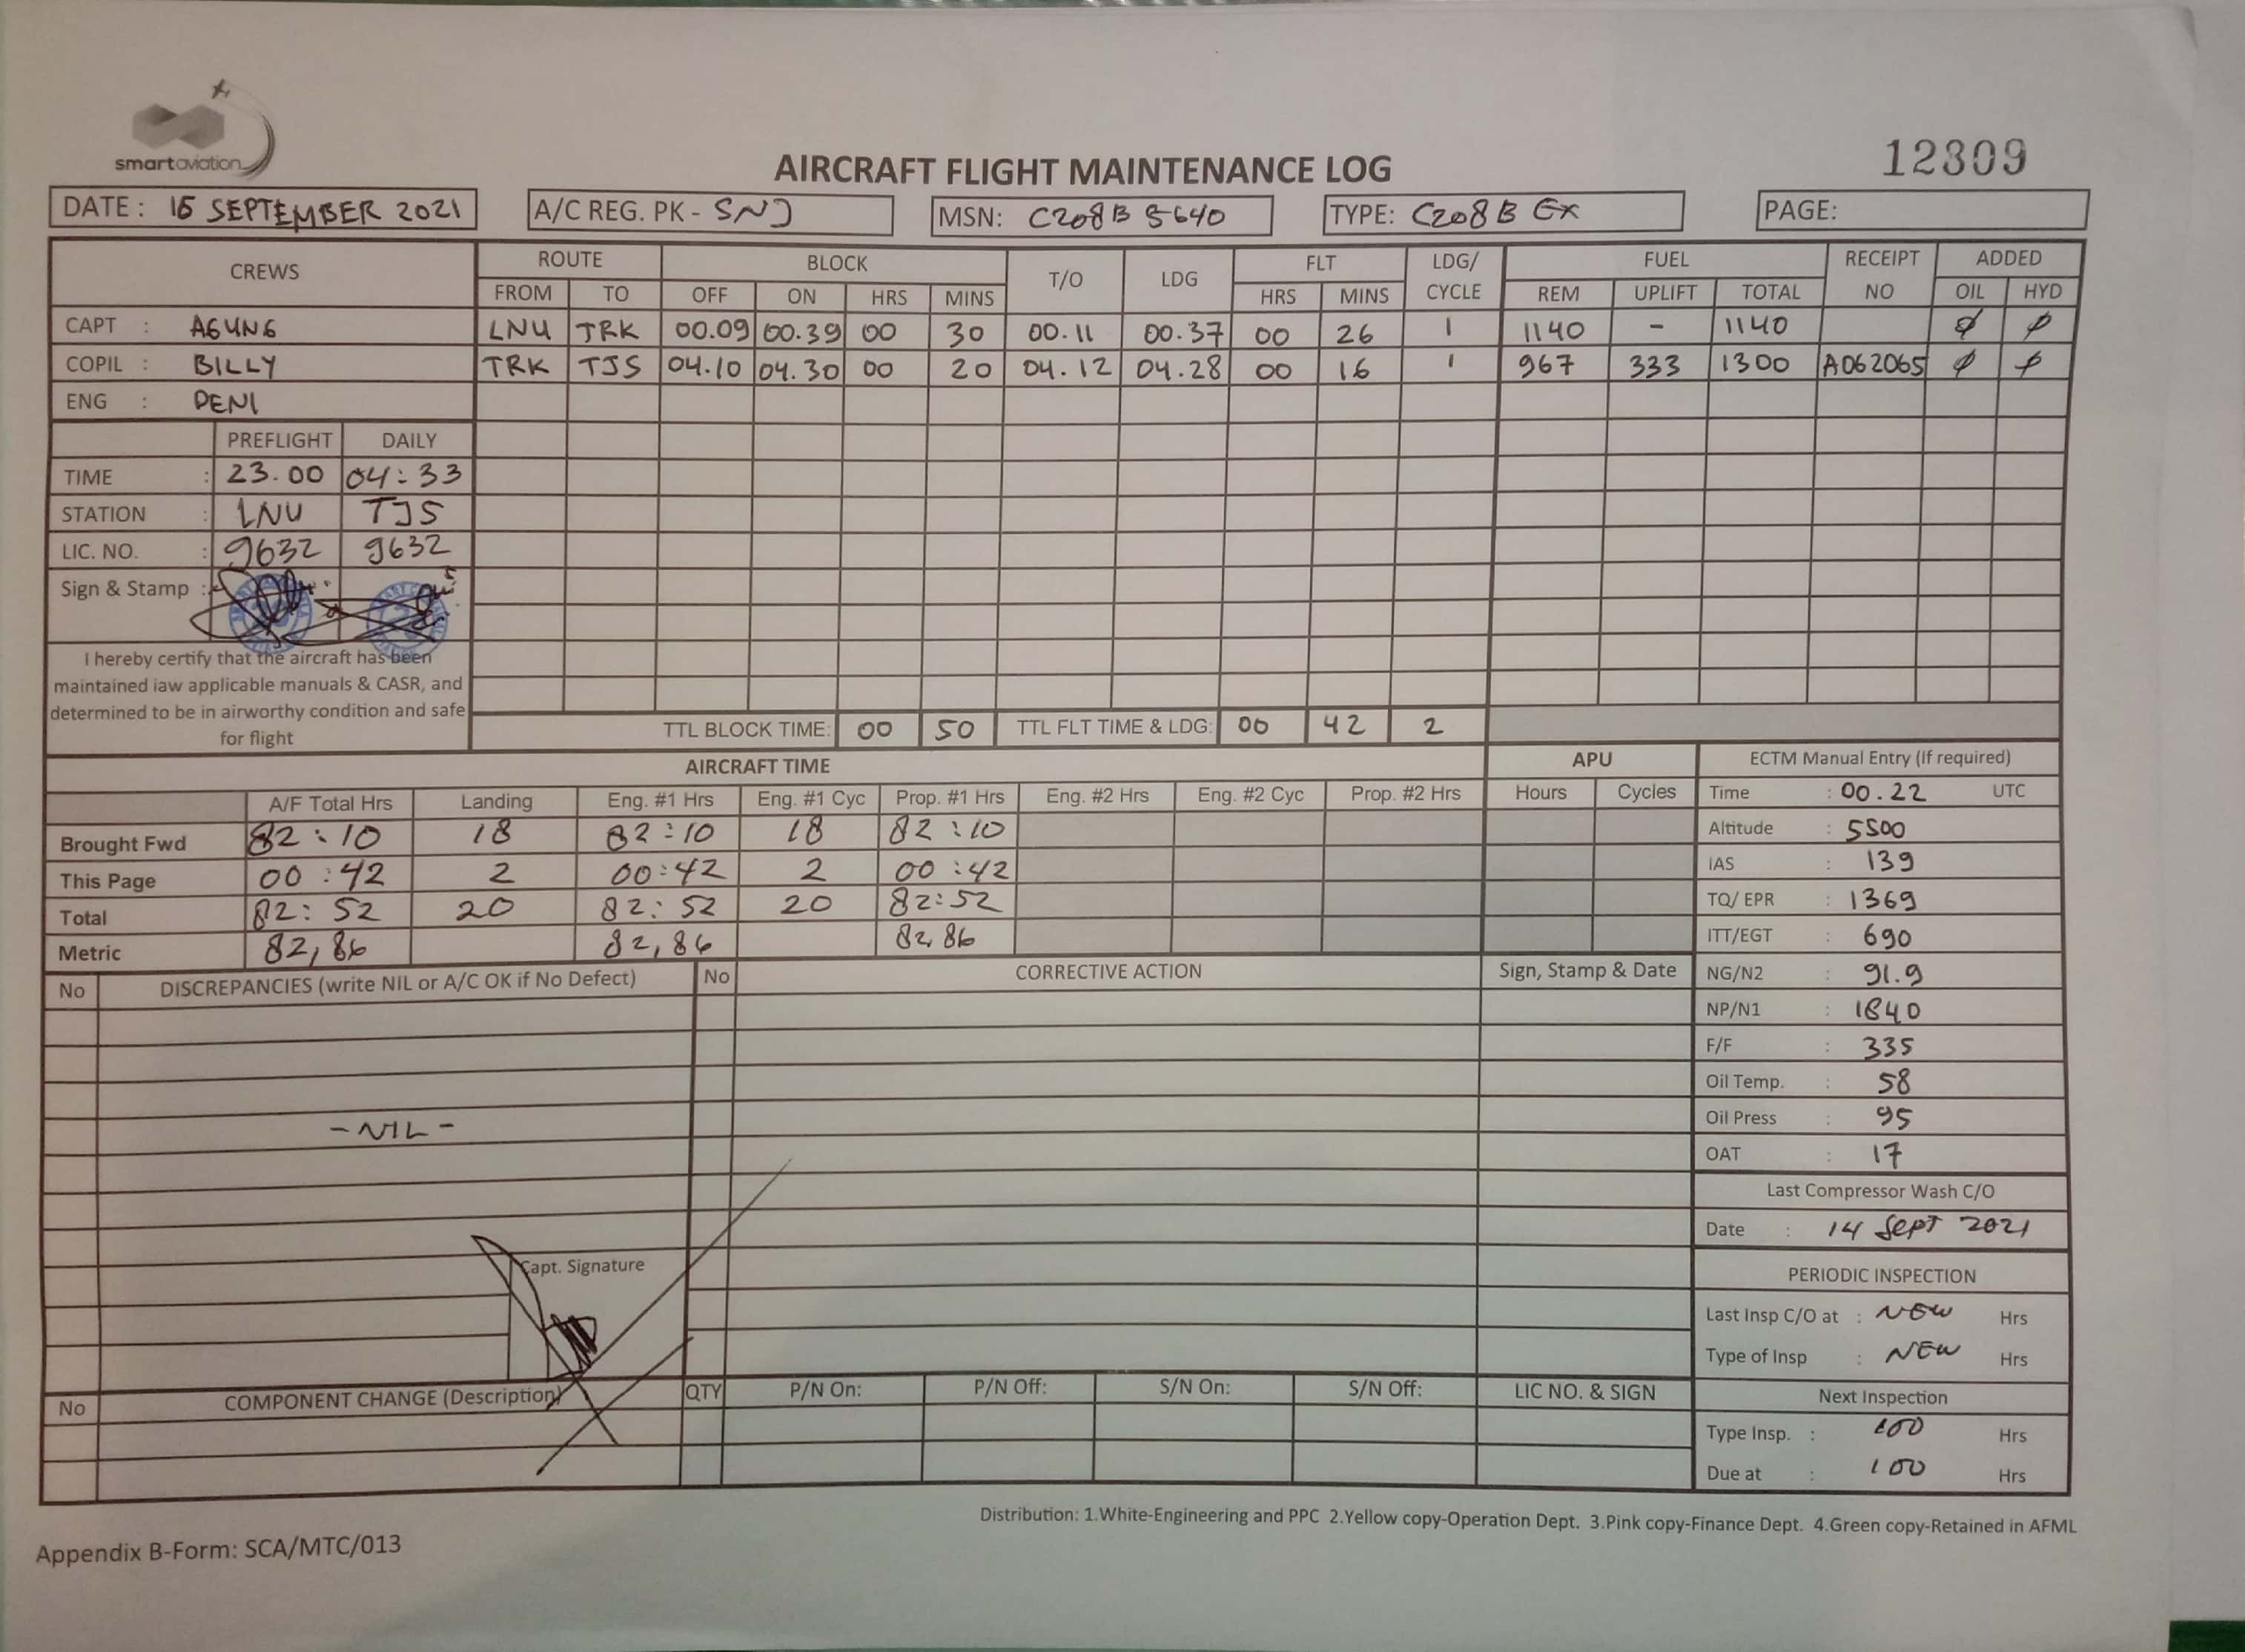 smartaviation
12309
AIRCRAFT FLIGHT MAINTENANCE LOG
DATE: 15 SEPTEMBER 2021 A/C REG. PK - SNJ MSN: C208B 5640 TYPE: C208B EX PAGE:
CREWS ROUTE BLOCK T/O LDG FLT LDG/ CYCLE FUEL RECEIPT NO ADDED
FROM TO OFF ON HRS MINS HRS MINS REM UPLIFT TOTAL OIL HYD
CAPT : AGUNG LNU TRK 00.09 00.39 00 30 00.11 00.37 00 26 1 1140 - 1140 ∅ ∅
COPIL : BILLY TRK TJS 04.10 04.30 00 20 04.12 04.28 00 16 1 967 333 1300 A062065 ∅ ∅
ENG : DENI
PREFLIGHT DAILY
TIME : 23.00 04:33
STATION : LNU TJS
LIC. NO. : 9632 9632
Sign & Stamp :
I hereby certify that the aircraft has been
maintained iaw applicable manuals & CASR, and
determined to be in airworthy condition and safe
for flight
TTL BLOCK TIME: 00 50 TTL FLT TIME & LDG: 00 42 2
AIRCRAFT TIME APU
A/F Total Hrs Landing Eng. #1 Hrs Eng. #1 Cyc Prop. #1 Hrs Eng. #2 Hrs Eng. #2 Cyc Prop. #2 Hrs Hours Cycles
Brought Fwd 82:10 18 82:10 18 82:10
This Page 00:42 2 00:42 2 00:42
Total 82:52 20 82:52 20 82:52
Metric 82,86 82,86 82,86
ECTM Manual Entry (If required)
Time : 00.22 UTC
Altitude : 5500
IAS : 139
TQ/ EPR : 1369
ITT/EGT : 690
NG/N2 : 91.9
NP/N1 : 1840
F/F : 335
Oil Temp. : 58
Oil Press : 95
OAT : 17
Last Compressor Wash C/O
Date : 14 Sept 2021
PERIODIC INSPECTION
Last Insp C/O at : NEW Hrs
Type of Insp : NEW Hrs
Next Inspection
Type Insp. : 100 Hrs
Due at : 100 Hrs
No DISCREPANCIES (write NIL or A/C OK if No Defect) No CORRECTIVE ACTION Sign, Stamp & Date
- NIL -
Capt. Signature
No COMPONENT CHANGE (Description) QTY P/N On: P/N Off: S/N On: S/N Off: LIC NO. & SIGN
Distribution: 1.White-Engineering and PPC 2.Yellow copy-Operation Dept. 3.Pink copy-Finance Dept. 4.Green copy-Retained in AFML
Appendix B-Form: SCA/MTC/013